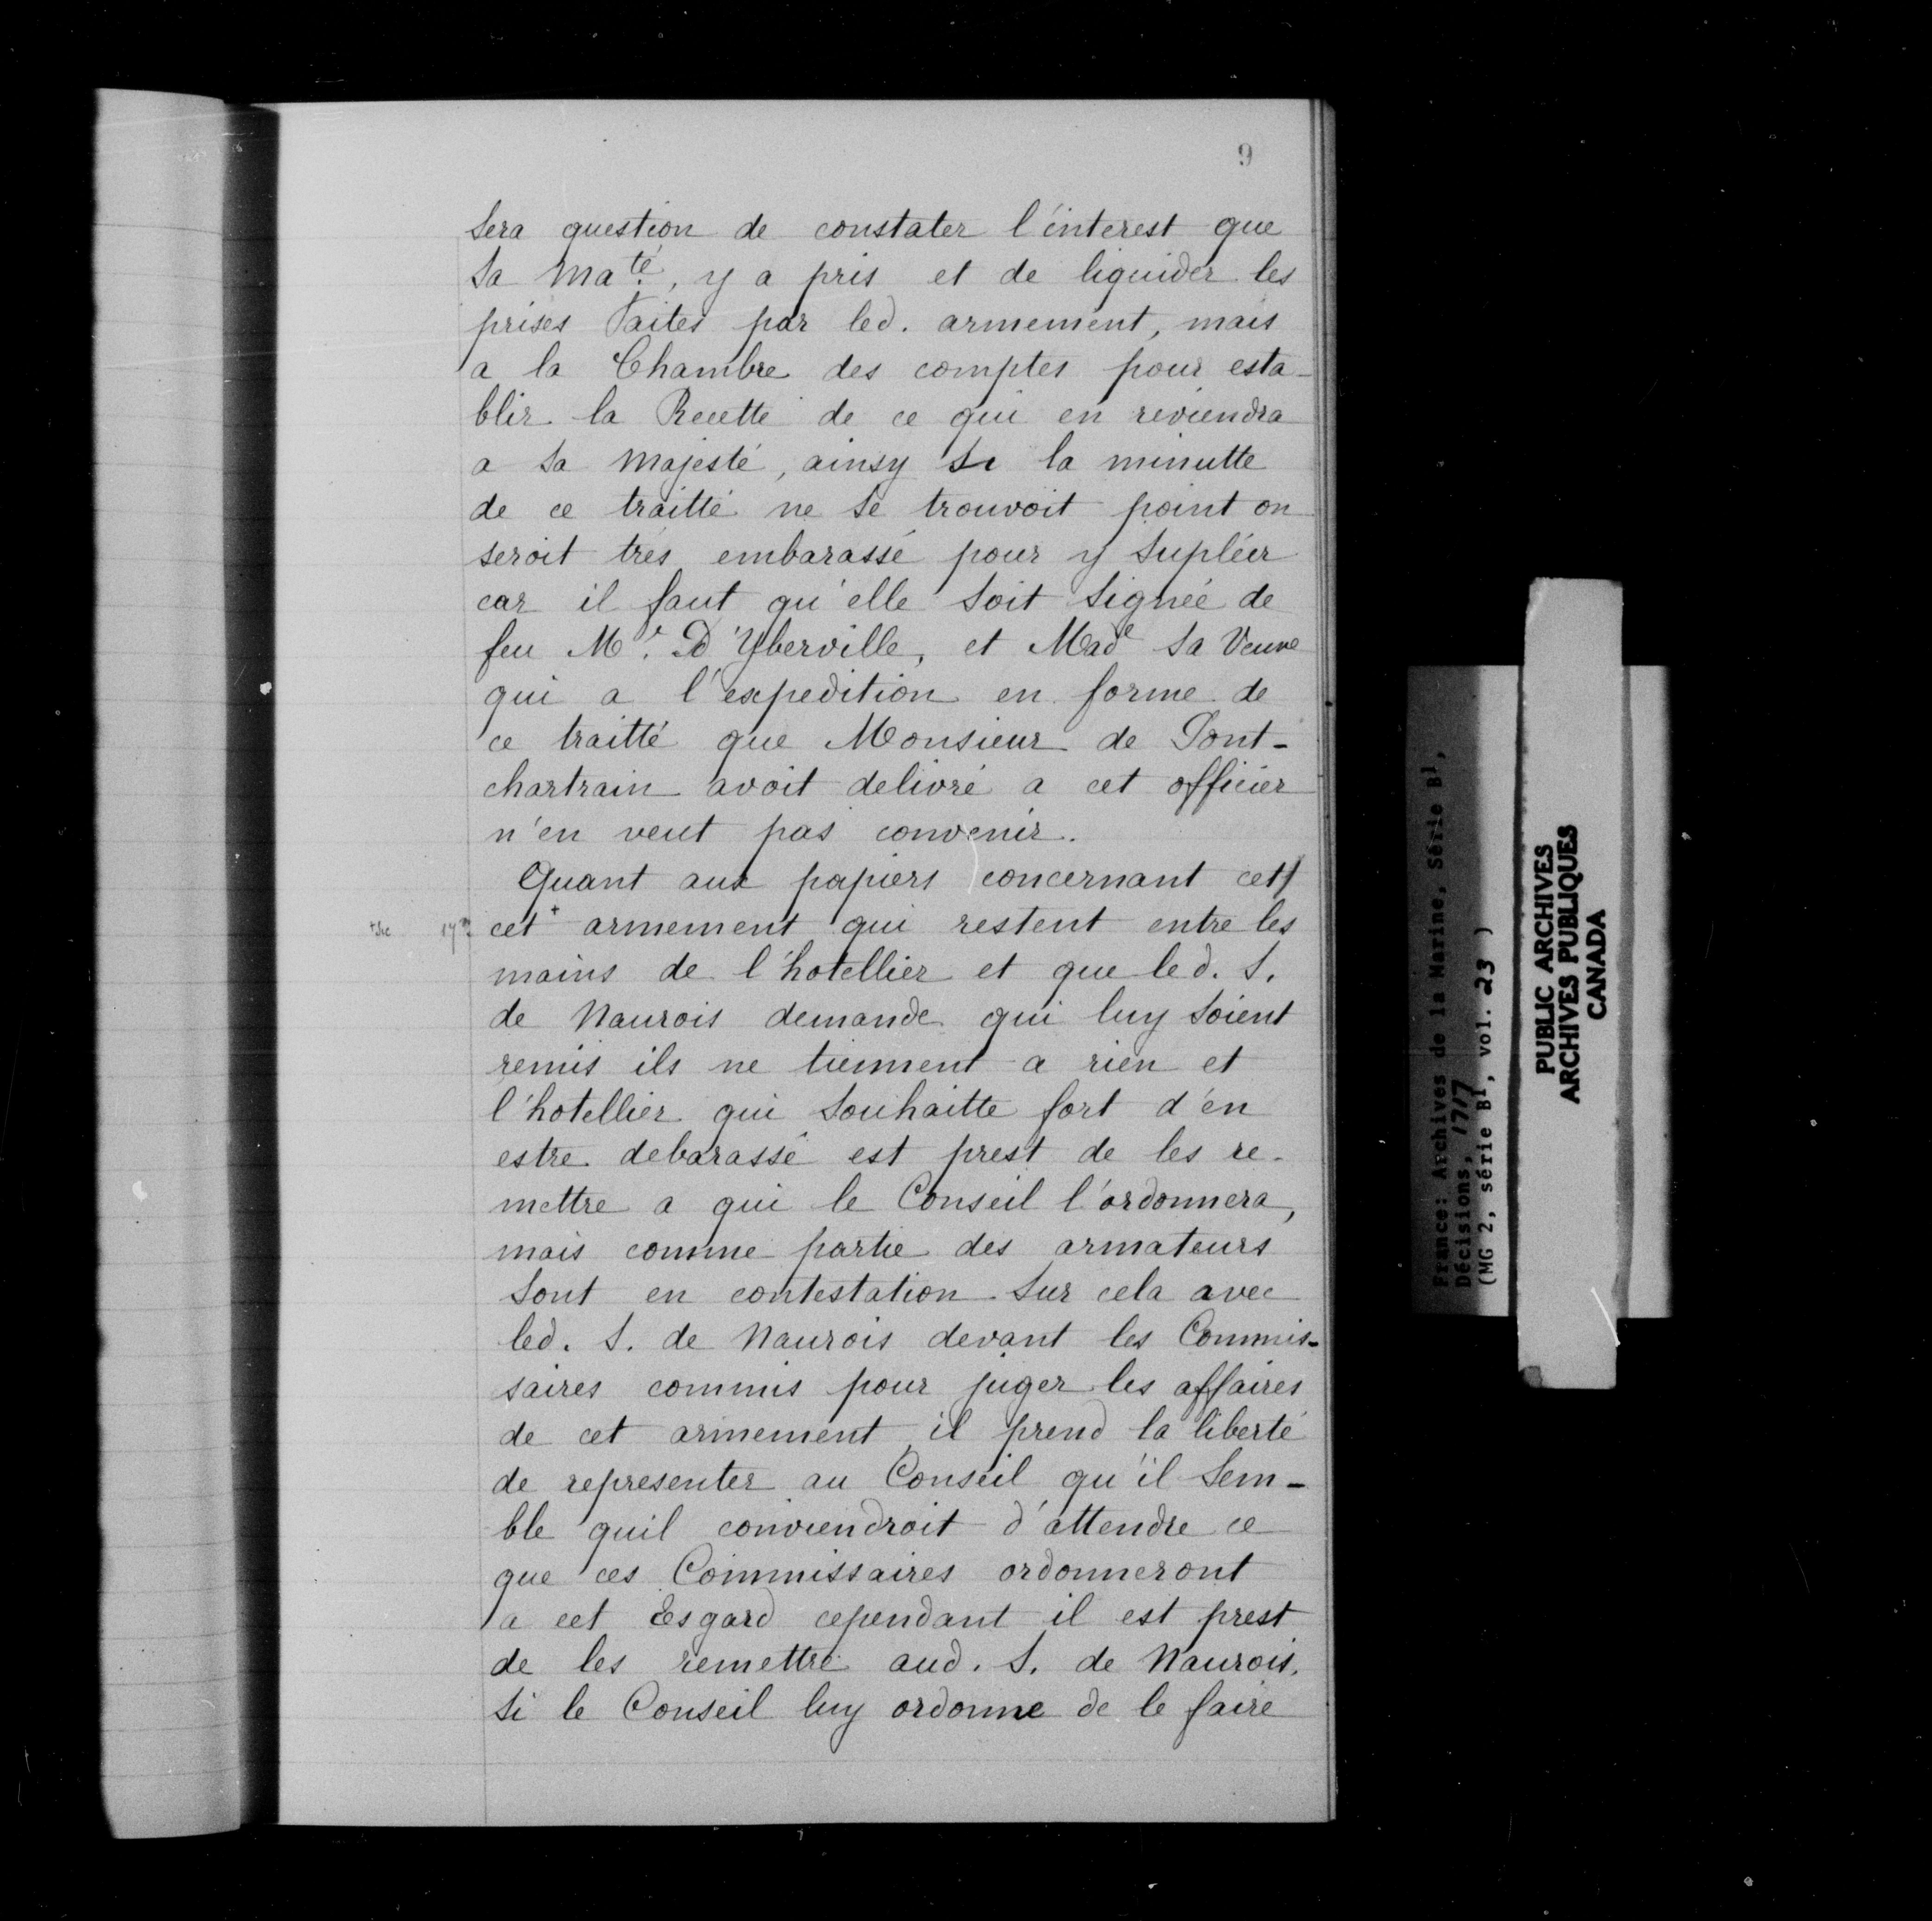 9
Sera question de constater l'interest que
Sa Ma.té, y a pris et de liquider les
prises faites par led. armement, mais
a la Chambre des comptes pour esta-
blir la Recette de ce qui en reviendra
a Sa Majesté, ainsy Si la minutte
de ce traitté ne Se trouvoit point on
seroit très embarassé pour y Supléer
car il faut qu'elle Soit Signée de
feu M.r D'Yberville, et Made Sa Veuve
qui a l'expedition en forme de
ce traitté que Monsieur de Pont-
chartrain avoit delivré a cet officier
n'en veut pas convenir.
Quant aux papiers concernant cet
+sic
cet + armement qui restent entre les
mains de l'hotellier et que led. S.
de Naurois demande qui luy Soient
remis ils ne tiennent a rien et
l'hotellier qui Souhaitte fort d'en
estre debarassé est prest de les re-
mettre a qui le Conseil l'ordonnera,
mais comme partie des armateurs
Sont en contestation Sur cela avec
led. S. de Naurois devant les Commis-
saires commis pour juger les affaires
de cet armement, il prend la liberté
de representer au Conseil qu'il Sem-
ble quil conviendroit d'attendre ce
que ces Commissaires ordonneront
a cet Esgard cependant il est prest
de les remettre aud. S. de Naurois,
Si le Conseil luy ordonne de le faire
France: Archives de la Marine, Série B1,
Décisions, 1717
(MG 2, série B1, vol. 23 )
PUBLIC ARCHIVES
ARCHIVES PUBLIQUES
CANADA